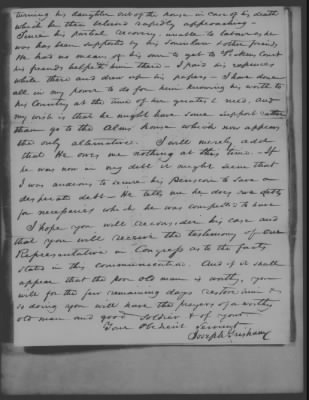 turning his daughter out of the house in case of his death
which he then believed rapidly approaching
Since his partial recovery, unable to labour, he
was has been supported by his & other friends
He had no means of his own to get to Court
his friends helped him there - I paid his expences
while there and drew up his papers - I have done
all in my power to do for him knowing his worth to
his Country at the time of her greatest need, and
my wish is that he might have some support rather
than go to the Alms house which now appears
the only alternative. I will merely add
that He owes me nothing at this time - If
he was now in my debt it might seem that
I was anxious to secure his Pension to save a
desperate debt - He tells me he does owe debts
for necessaries which he was compelled to have
I hope you will reconsider his case and
that you will receive the testimony of our
Representative in Congress as to the facts
stated in this communication. And if it shall
appear that the poor old man is worthy, you
will for the few remaining days restore him &
in doing you will have the prayers of a worthy
old man and good soldier & of your
Your Obedient Servant
Joseph